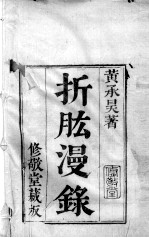 黃承昊著
折肱漫錄
修敬堂藏板